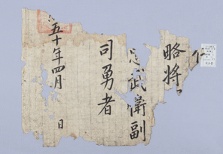 略將軍
忠武衛副
司勇者
五十年四月 日